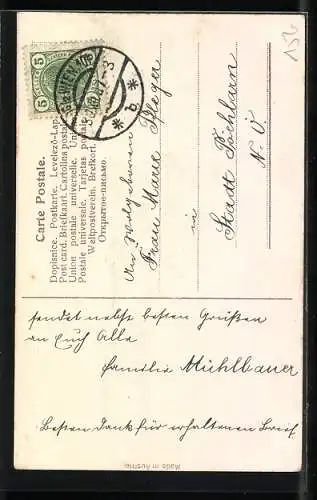 Carte Postale.
Dopisnice. Postkarte. Levelező-Lap.
Post card. Briefkaart. Cartolina postale
Union postale universelle. Uni
Postale universale. Tarjetas po
Weltpostverein. Brefkort.
Открытое-письмо.
5 5
GMUNDEN
* b *
An wolgeboren
Frau Marie Pfleger
in
Stadt Pöchlarn
N. Ö
156
sendet nebst besten Grüßen
an Euch Alle
Familie Mühlbauer
Besten Dank für erhaltenen Brief.
Made in Austria